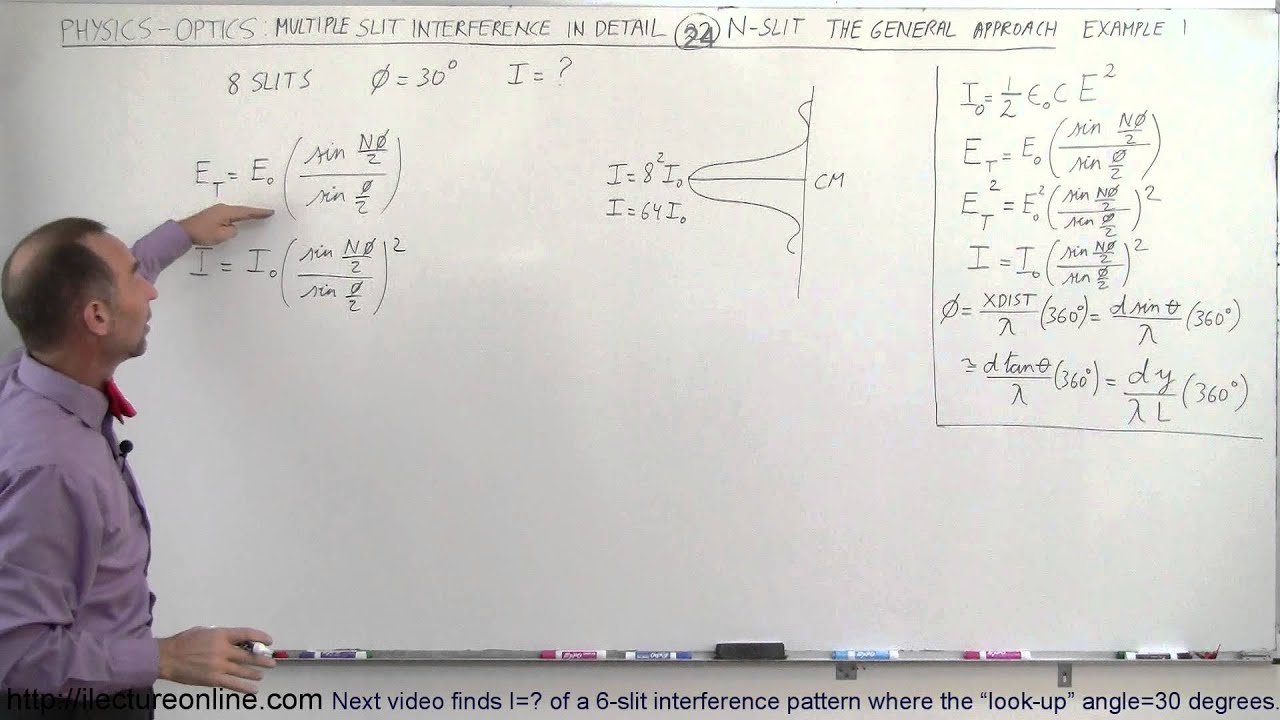 PHYSICS-OPTICS: MULTIPLE SLIT INTERFERENCE IN DETAIL 24 N-SLIT THE GENERAL APPROACH EXAMPLE 1
8 SLITS ∅ = 30° I = ?
E_T = E_0 (sin N∅/2 / sin ∅/2)
I = I_0 (sin N∅/2 / sin ∅/2)^2
I = 8^2 I_0
I = 64 I_0
CM
I_0 = 1/2 ε_0 C E^2
E_T = E_0 (sin N∅/2 / sin ∅/2)
E_T^2 = E_0^2 (sin N∅/2 / sin ∅/2)^2
I = I_0 (sin N∅/2 / sin ∅/2)^2
∅ = XDIST/λ (360°) = d sin θ/λ (360°)
≅ d tan θ/λ (360°) = d y/λ L (360°)
http://ilectureonline.com Next video finds I=? of a 6-slit interference pattern where the “look-up” angle=30 degrees.